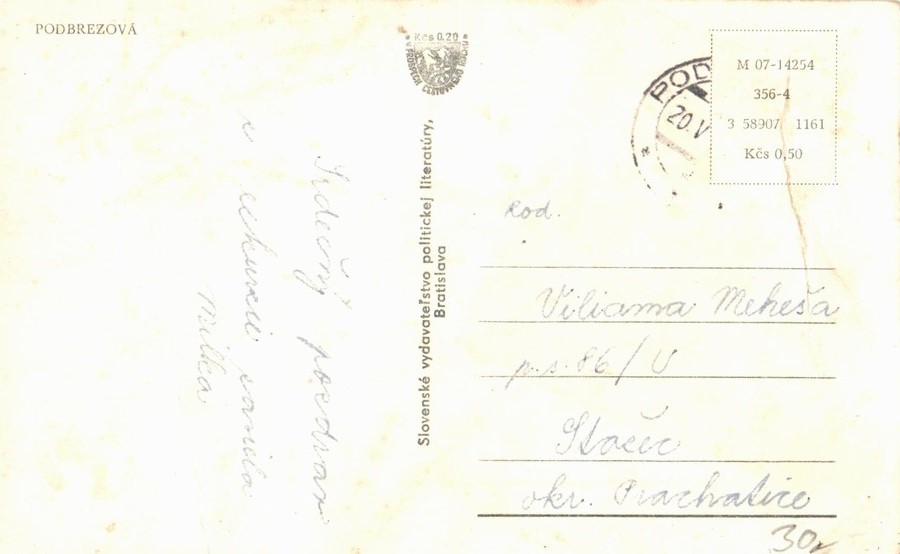 PODBREZOVÁ
Kčs 0.20
V PROSPECH CESTOVNÉHO RUCHU
Srdečný pozdrav
z exkurzii
Milka
Slovenské vydavateľstvo politickej literatúry,
Bratislava
POD
20.V
M 07-14254
356-4
3 58907 1161
Kčs 0,50
Rod.
Viliama Meheša
p.s. 86/U
Stožec
okr. Prachatice
30,